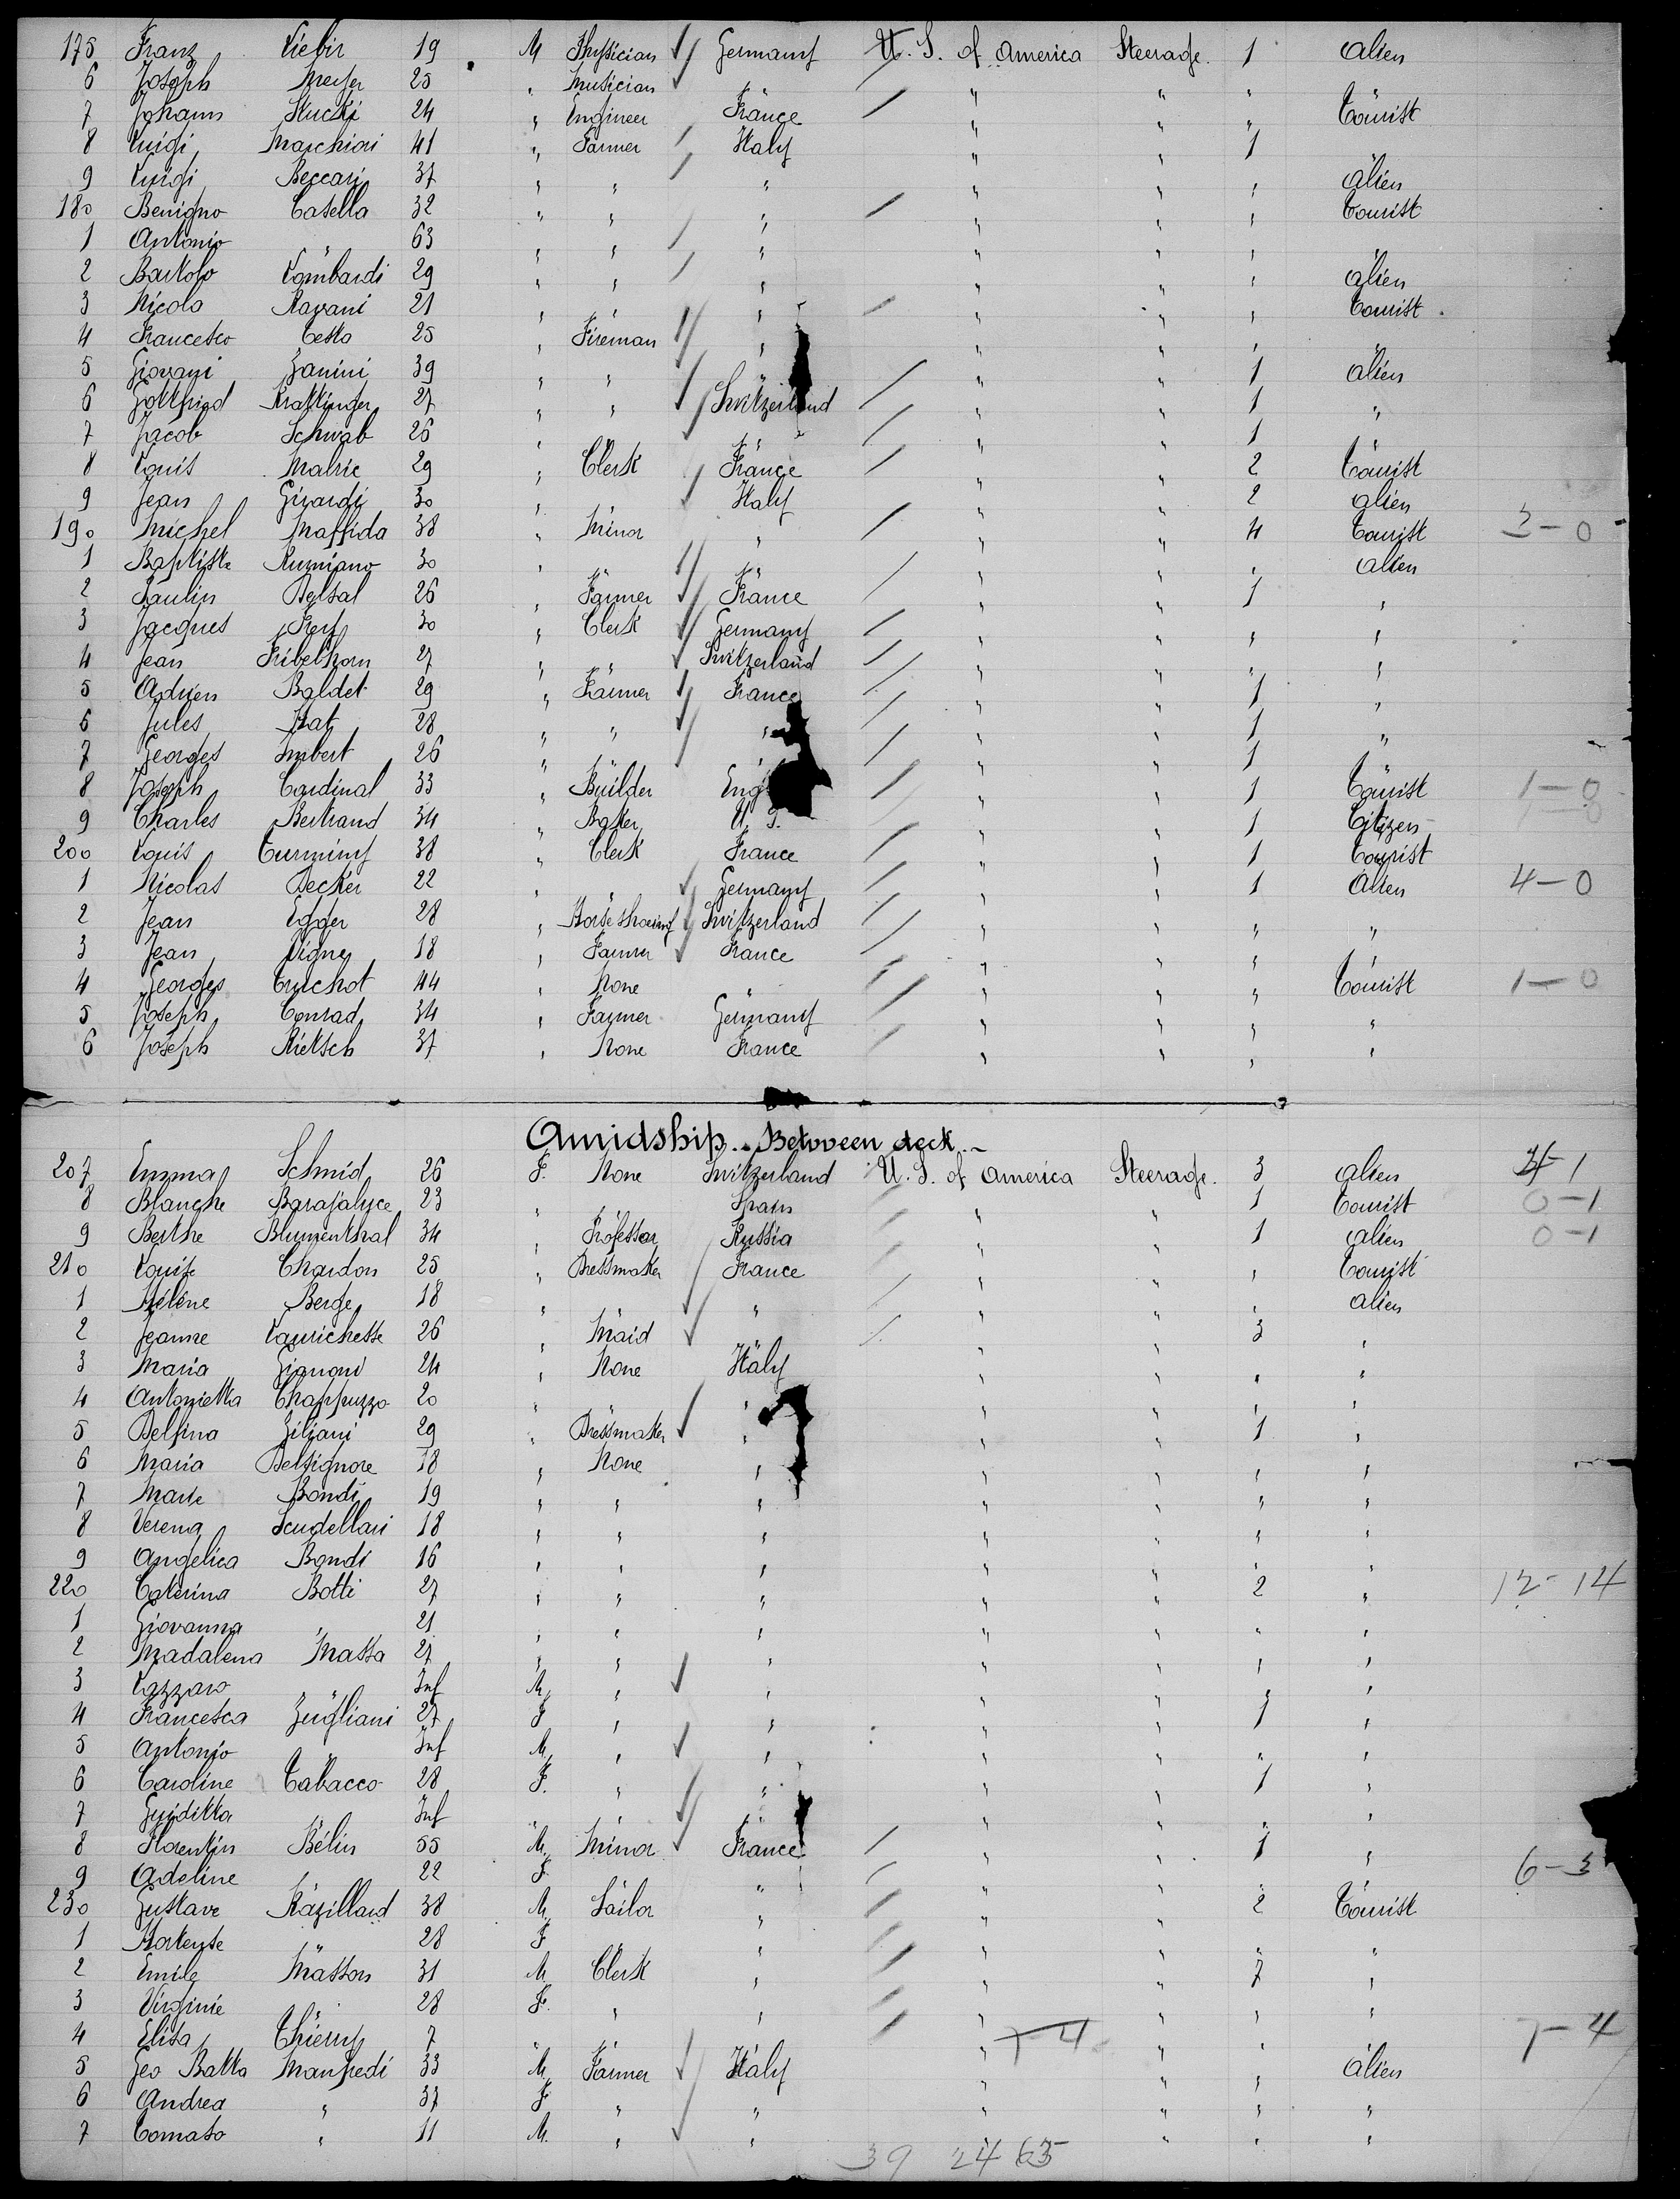 175 Franz Viebir 19 M Physician Germany U. S. of America Steerage. 1 alien
6 Joseph Meyer 25 " Musician " " " "
7 Johann Stucki 24 " Engineer France " " " Tourist
8 Luigi Marchiori 41 " Farmer Italy " " 1 "
9 Luigi Beccari 37 " " " " " " alien
180 Benigno Casella 32 " " " " " " Tourist
1 Antonio " 63 " " " " " " "
2 Bartolo Lombardi 29 " " " " " " alien
3 Nicola Ravani 21 " " " " " " Tourist
4 Francesco Testo 25 " Fireman " " " " "
5 Giovani Zanini 39 " " " " " 1 alien
6 Gottfried Krattinger 27 " " Switzerland " " 1 "
7 Jacob Schwab 26 " " " " " 1 "
8 Louis Malric 29 " Clerk France " " 2 Tourist
9 Jean Girardi 30 " " Italy " " 2 alien
190 Michel Maffida 38 " Minor " " " 4 Tourist 3-0
1 Baptiste Rumiano 30 " " " " " " alien
2 Paulin Delsal 26 " Farmer France " " 1 "
3 Jacques Frey 30 " Clerk Germany " " " "
4 Jean Fribelhorn 27 " " Switzerland " " " "
5 Adrien Baldet 29 " Farmer France " " 1 "
6 Jules Hat 28 " " " " " 1 "
7 Georges Imbert 26 " " " " " 1 "
8 Joseph Cardinal 33 " Builder Eng " " 1 Tourist 1-0
9 Charles Bertrand 34 " Baker U. S. " " 1 Citizen
200 Louis Turminy 38 " Clerk France " " 1 Tourist
1 Nicolas Decker 22 " " Germany " " 1 Alien 4-0
2 Jean Egger 28 " Horseshoeing Switzerland " " " "
3 Jean Vigne 18 " Farmer France " " " "
4 Georges Truchot 44 " None " " " " Tourist 1-0
5 Joseph Conrad 34 " Farmer Germany " " " "
6 Joseph Rietsch 37 " None France " " " "
Amidship.. Between deck.-
207 Emma Schmid 26 F. None Switzerland U. S. of America Steerage. 3 alien 4-1
8 Blanche Barajalyce 23 " " Spain " " 1 Tourist 0-1
9 Berthe Blumenthal 34 " Professor Russia " " 1 alien 0-1
210 Louise Chardon 25 " Dressmaker France " " " Tourist
1 Hélène Berge 18 " " " " " " alien
2 Jeanne Laurichesse 26 " Maid " " " 3 "
3 Maria Gianoni 24 " None Italy " " " "
4 Antonietta Chappuzzo 20 " " " " " " "
5 Delfina Ziliani 29 " Dressmaker " " " 1 "
6 Maria Delsignore 18 " None " " " " "
7 Marie Bondi 19 " " " " " " "
8 Verena Scudellari 18 " " " " " " "
9 Angelica Bondi 16 " " " " " " "
220 Caterina Botti 27 " " " " " 2 " 12-14
1 Giovanna " 21 " " " " " " "
2 Madalena Massa 27 " " " " " " "
3 Lazzaro " Inf M " " " " " "
4 Francesca Zugliani 27 F " " " " 1 "
5 Antonio " Inf M " " " " " "
6 Caroline Tabacco 28 F. " " " " 1 "
7 Guiditta " Inf " " " " " " "
8 Florentin Bélin 55 M Minor France " " 1 "
9 Adeline " 22 F. " " " " " " 6-3
230 Gustave Razillard 38 M Sailor " " " 2 Tourist
1 Hortense " 28 F " " " " " "
2 Emile Masson 31 M Clerk " " " 7 "
3 Virginie " 28 F. " " " " " "
4 Elisa Thierry 7 " " " " " " " 7-4 7-4
5 Geo Batta Manfredi 33 M Farmer Italy " " " alien
6 Andrea " 37 F " " " " " "
7 Tomaso " 11 M. " " " " " "
39 24 63